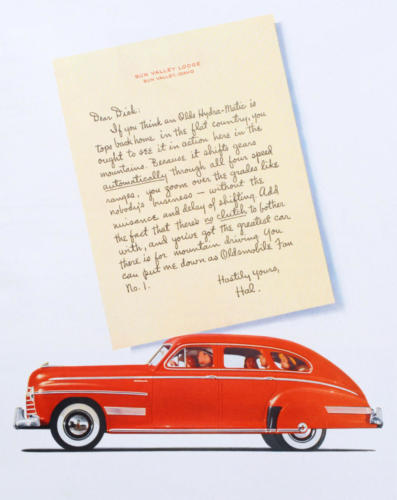 SUN VALLEY LODGE
SUN VALLEY, IDAHO
Dear Dick:
If you think an Olds Hydra-Matic is
tops back home in the flat country, you
ought to see it in action here in the
mountains. Because it shifts gears
automatically through all four speed
ranges, you zoom over the grades like
nobody's business — without the
nuisance and delay of shifting. Add
the fact that there's no clutch to bother
with, and you've got the greatest car
there is for mountain driving. You
can put me down as Oldsmobile Fan
No. 1.
Hastily yours,
Hal.